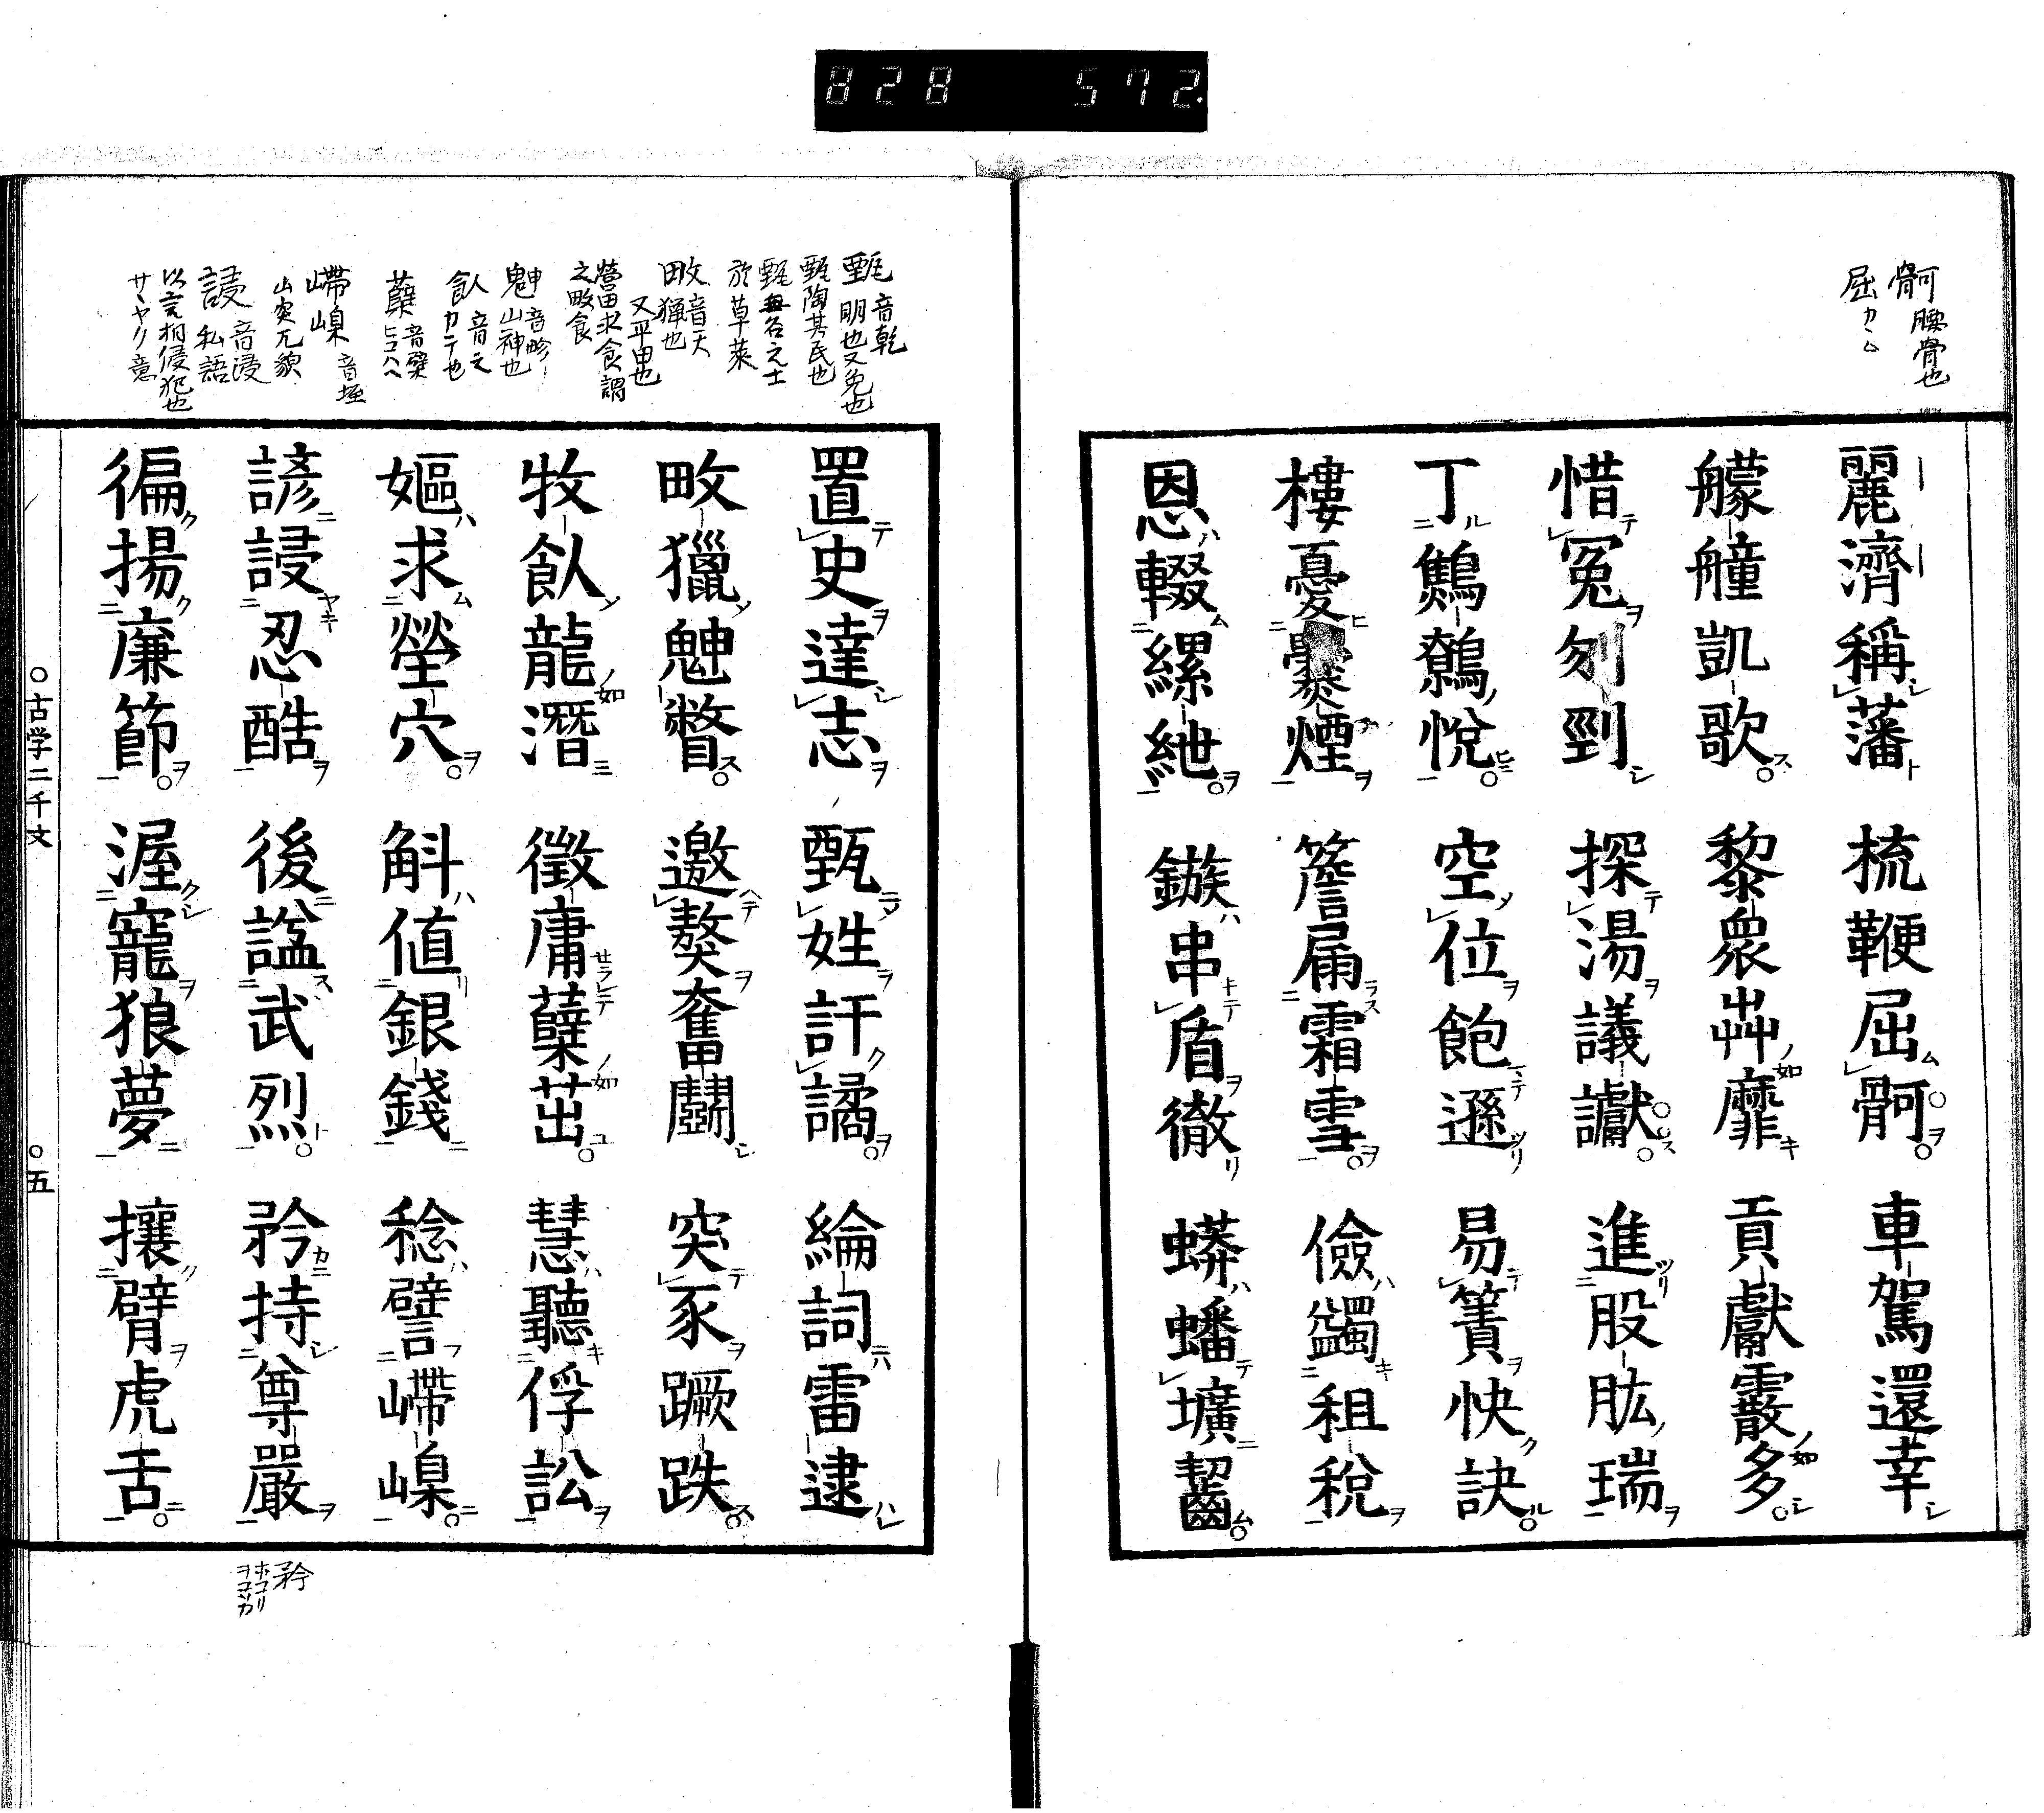 828 572.
骭 腰骨也
屈 カヽム
麗濟稱藩 梳鞭屈骭 車駕還幸
艨艟凱歌 黎衆艸靡 貢獻霰多
惜冤刎剄 探湯議讞 進股肱瑞
丁鷦鷯悅 空位飽遜 易簀快訣
樓憂爨煙 簷扁霜雪 儉蠲租稅
恩輟縲紲 鏃串盾徹 蟒蟠壙齧
甄 音乾
明也又免也
甄陶其民也
甄無名之士
於草萊
畋 音天
獵也
又平田也
營田求食謂
之畋食
魋 音
山神也
飤 音之
カテ也
蘖 音櫱
ヒコハヘ
嵽嵲 音垤
山突兀貌
䛘 音浸
私語
以言相侵犯也
サヽヤク意
置史達志 甄姓訐譎 綸詞雷逮
畋獵魋瞥 邀獒奮鬭 突豕蹶跌
牧飤龍潛 徵庸蘖茁 慧聽俘訟
嫗求塋穴 斛値銀錢 稔譬嵽嵲
諺䛘忍酷 後謚武烈 矜持尊嚴
徧揚廉節 渥寵狼夢 攘臂虎舌
矜 ホコリ
ヲコソカ
○古学二千文 ○五